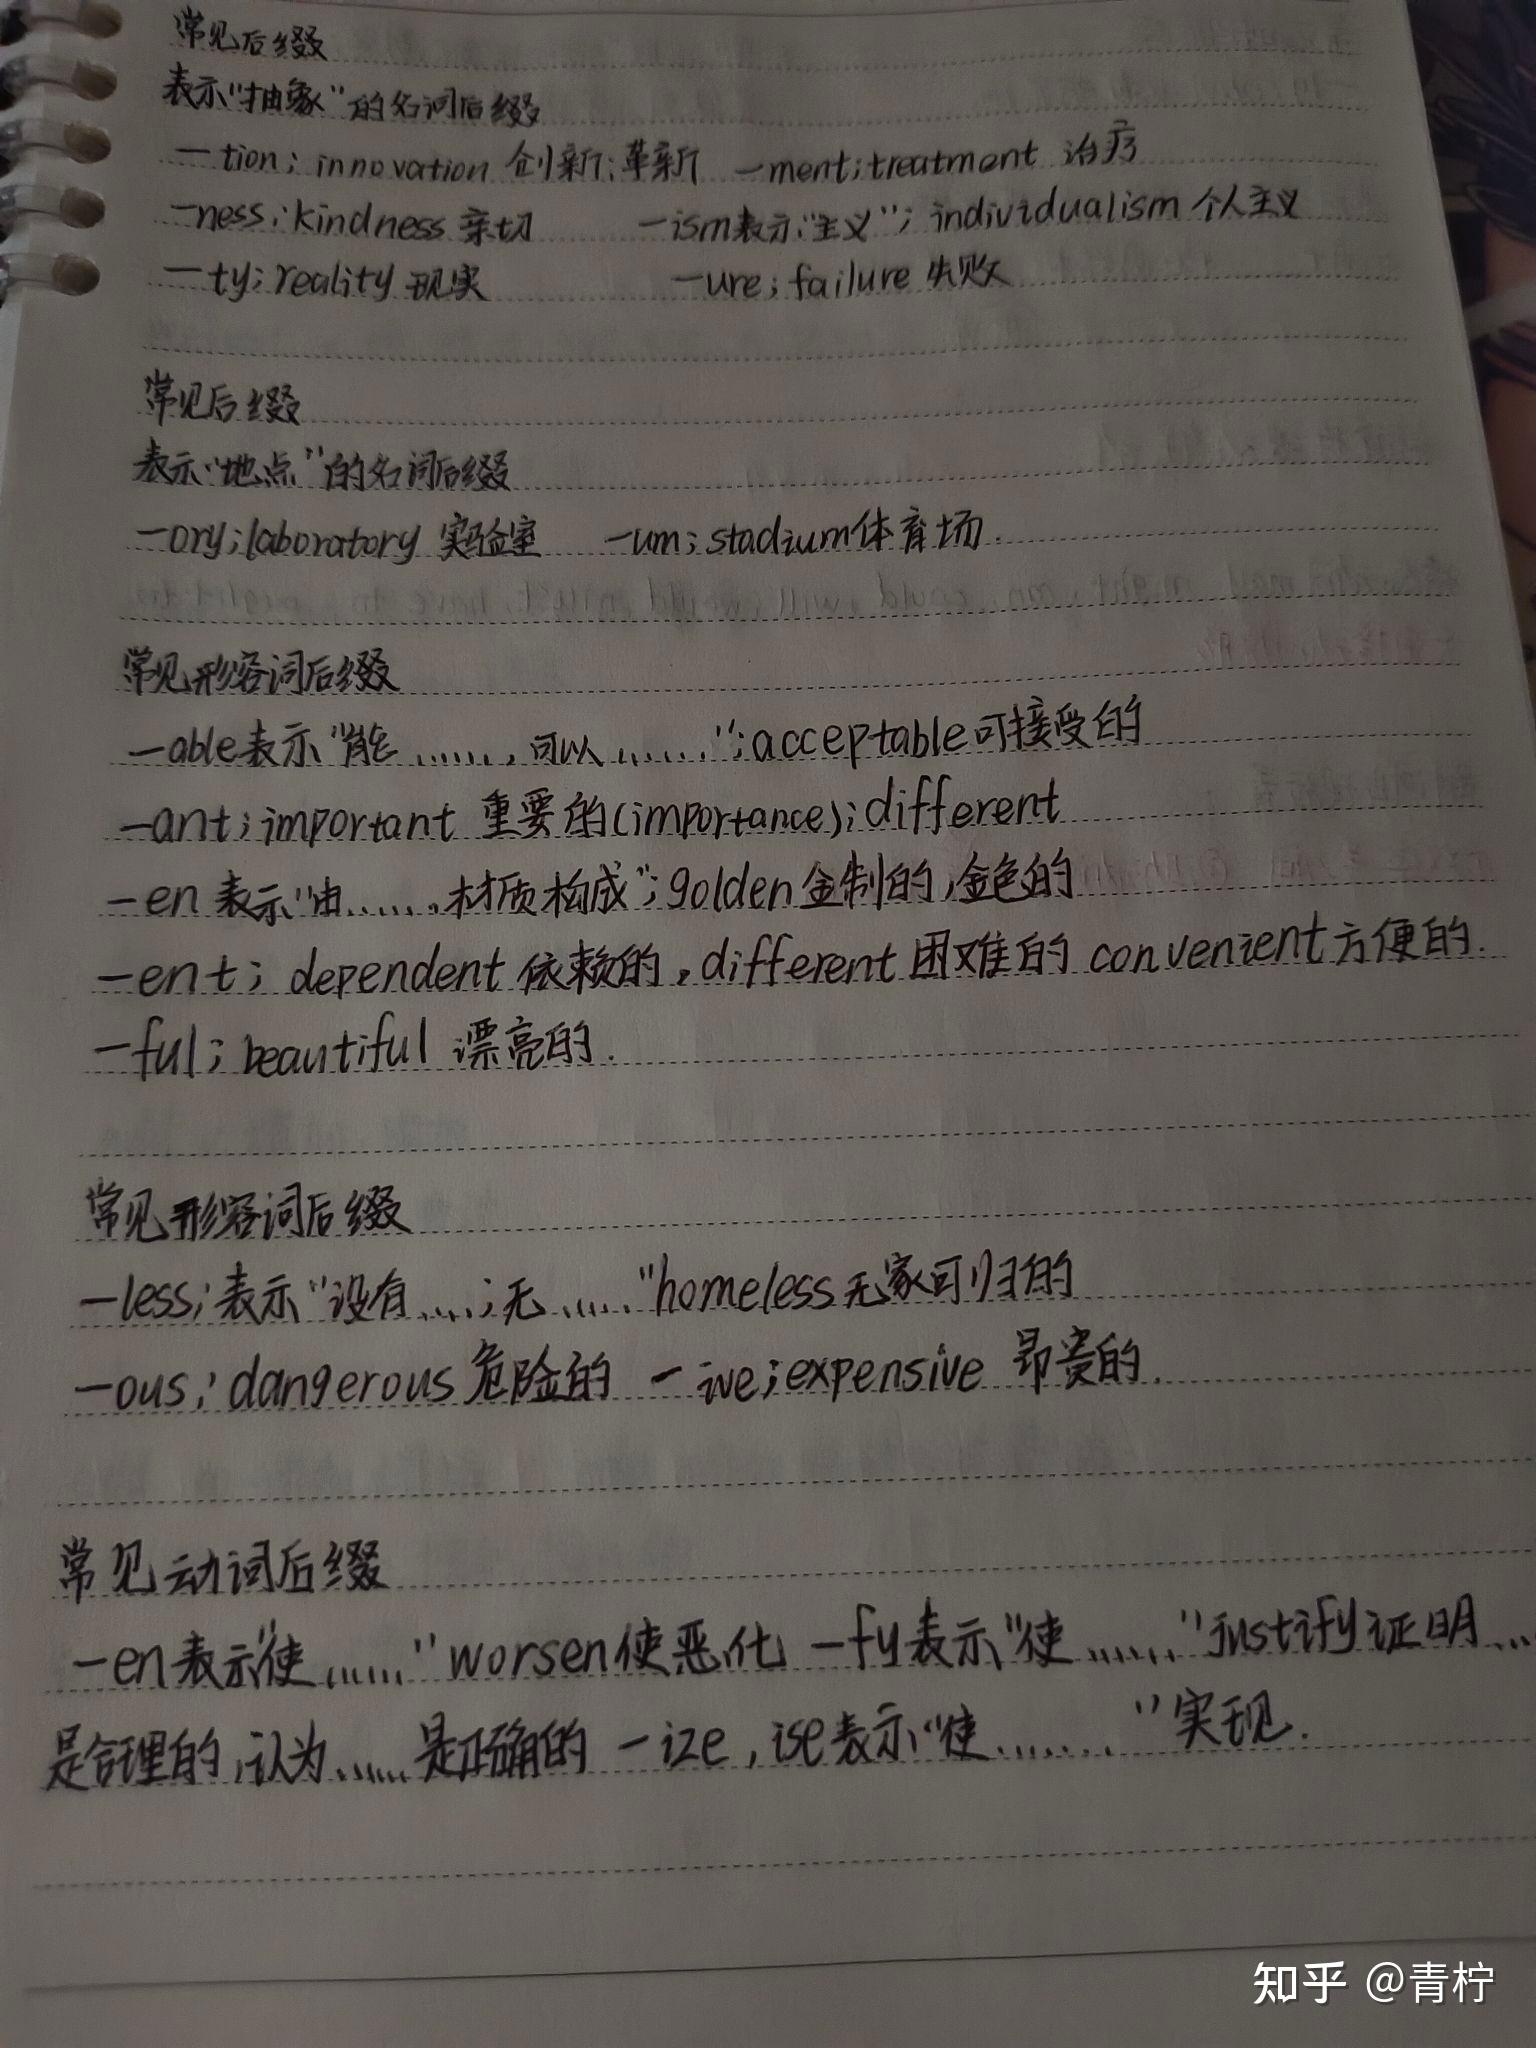 常见后缀
表示"抽象"的名词后缀
—tion; innovation 创新;革新 —ment; treatment 治疗
—ness; kindness 亲切 —ism表示"主义"; individualism 个人主义
—ty; reality 现实 —ure; failure 失败
常见后缀
表示"地点"的名词后缀
—ory; laboratory 实验室 —um; stadium体育场.
常见形容词后缀
—able表示"能......,可以......"; acceptable可接受的
—ant; important 重要的(importance); different
—en 表示"由......材质构成"; golden金制的,金色的
—ent; dependent 依赖的, different 困难的 convenient方便的.
—ful; beautiful 漂亮的.
常见形容词后缀
—less; 表示"没有....; 无....."homeless无家可归的
—ous; dangerous 危险的 —ive; expensive 昂贵的.
常见动词后缀
—en表示"使......"worsen使恶化 —fy表示"使......"justify证明...
是合理的,认为..... 是正确的 —ize, ise表示"使......."实现.
知乎 @青柠